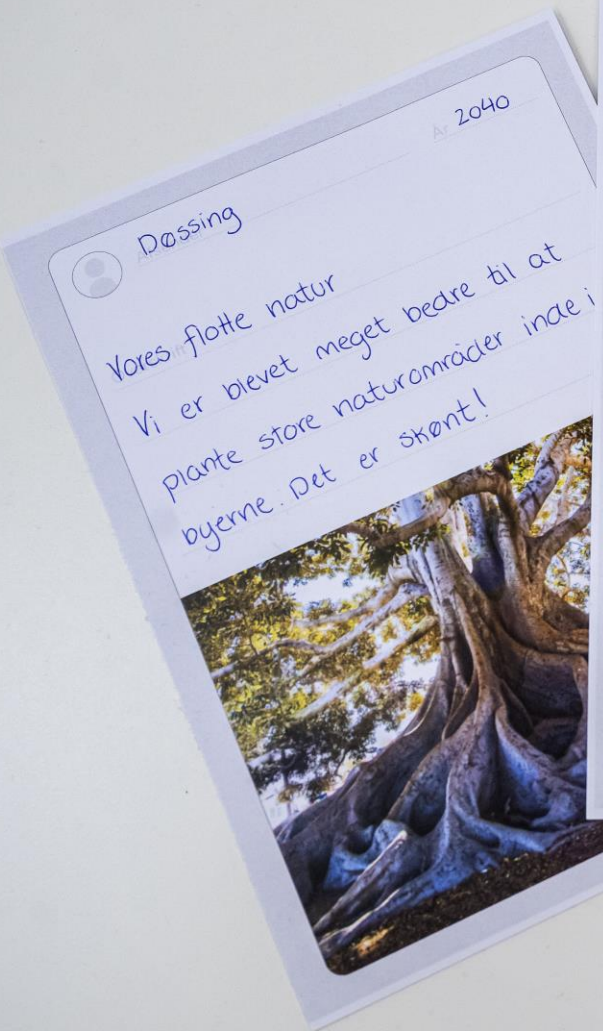 År 2040
Døssing
Vores flotte natur
Vi er blevet meget bedre til at
plante store naturområder inde i
byerne. Det er skønt!